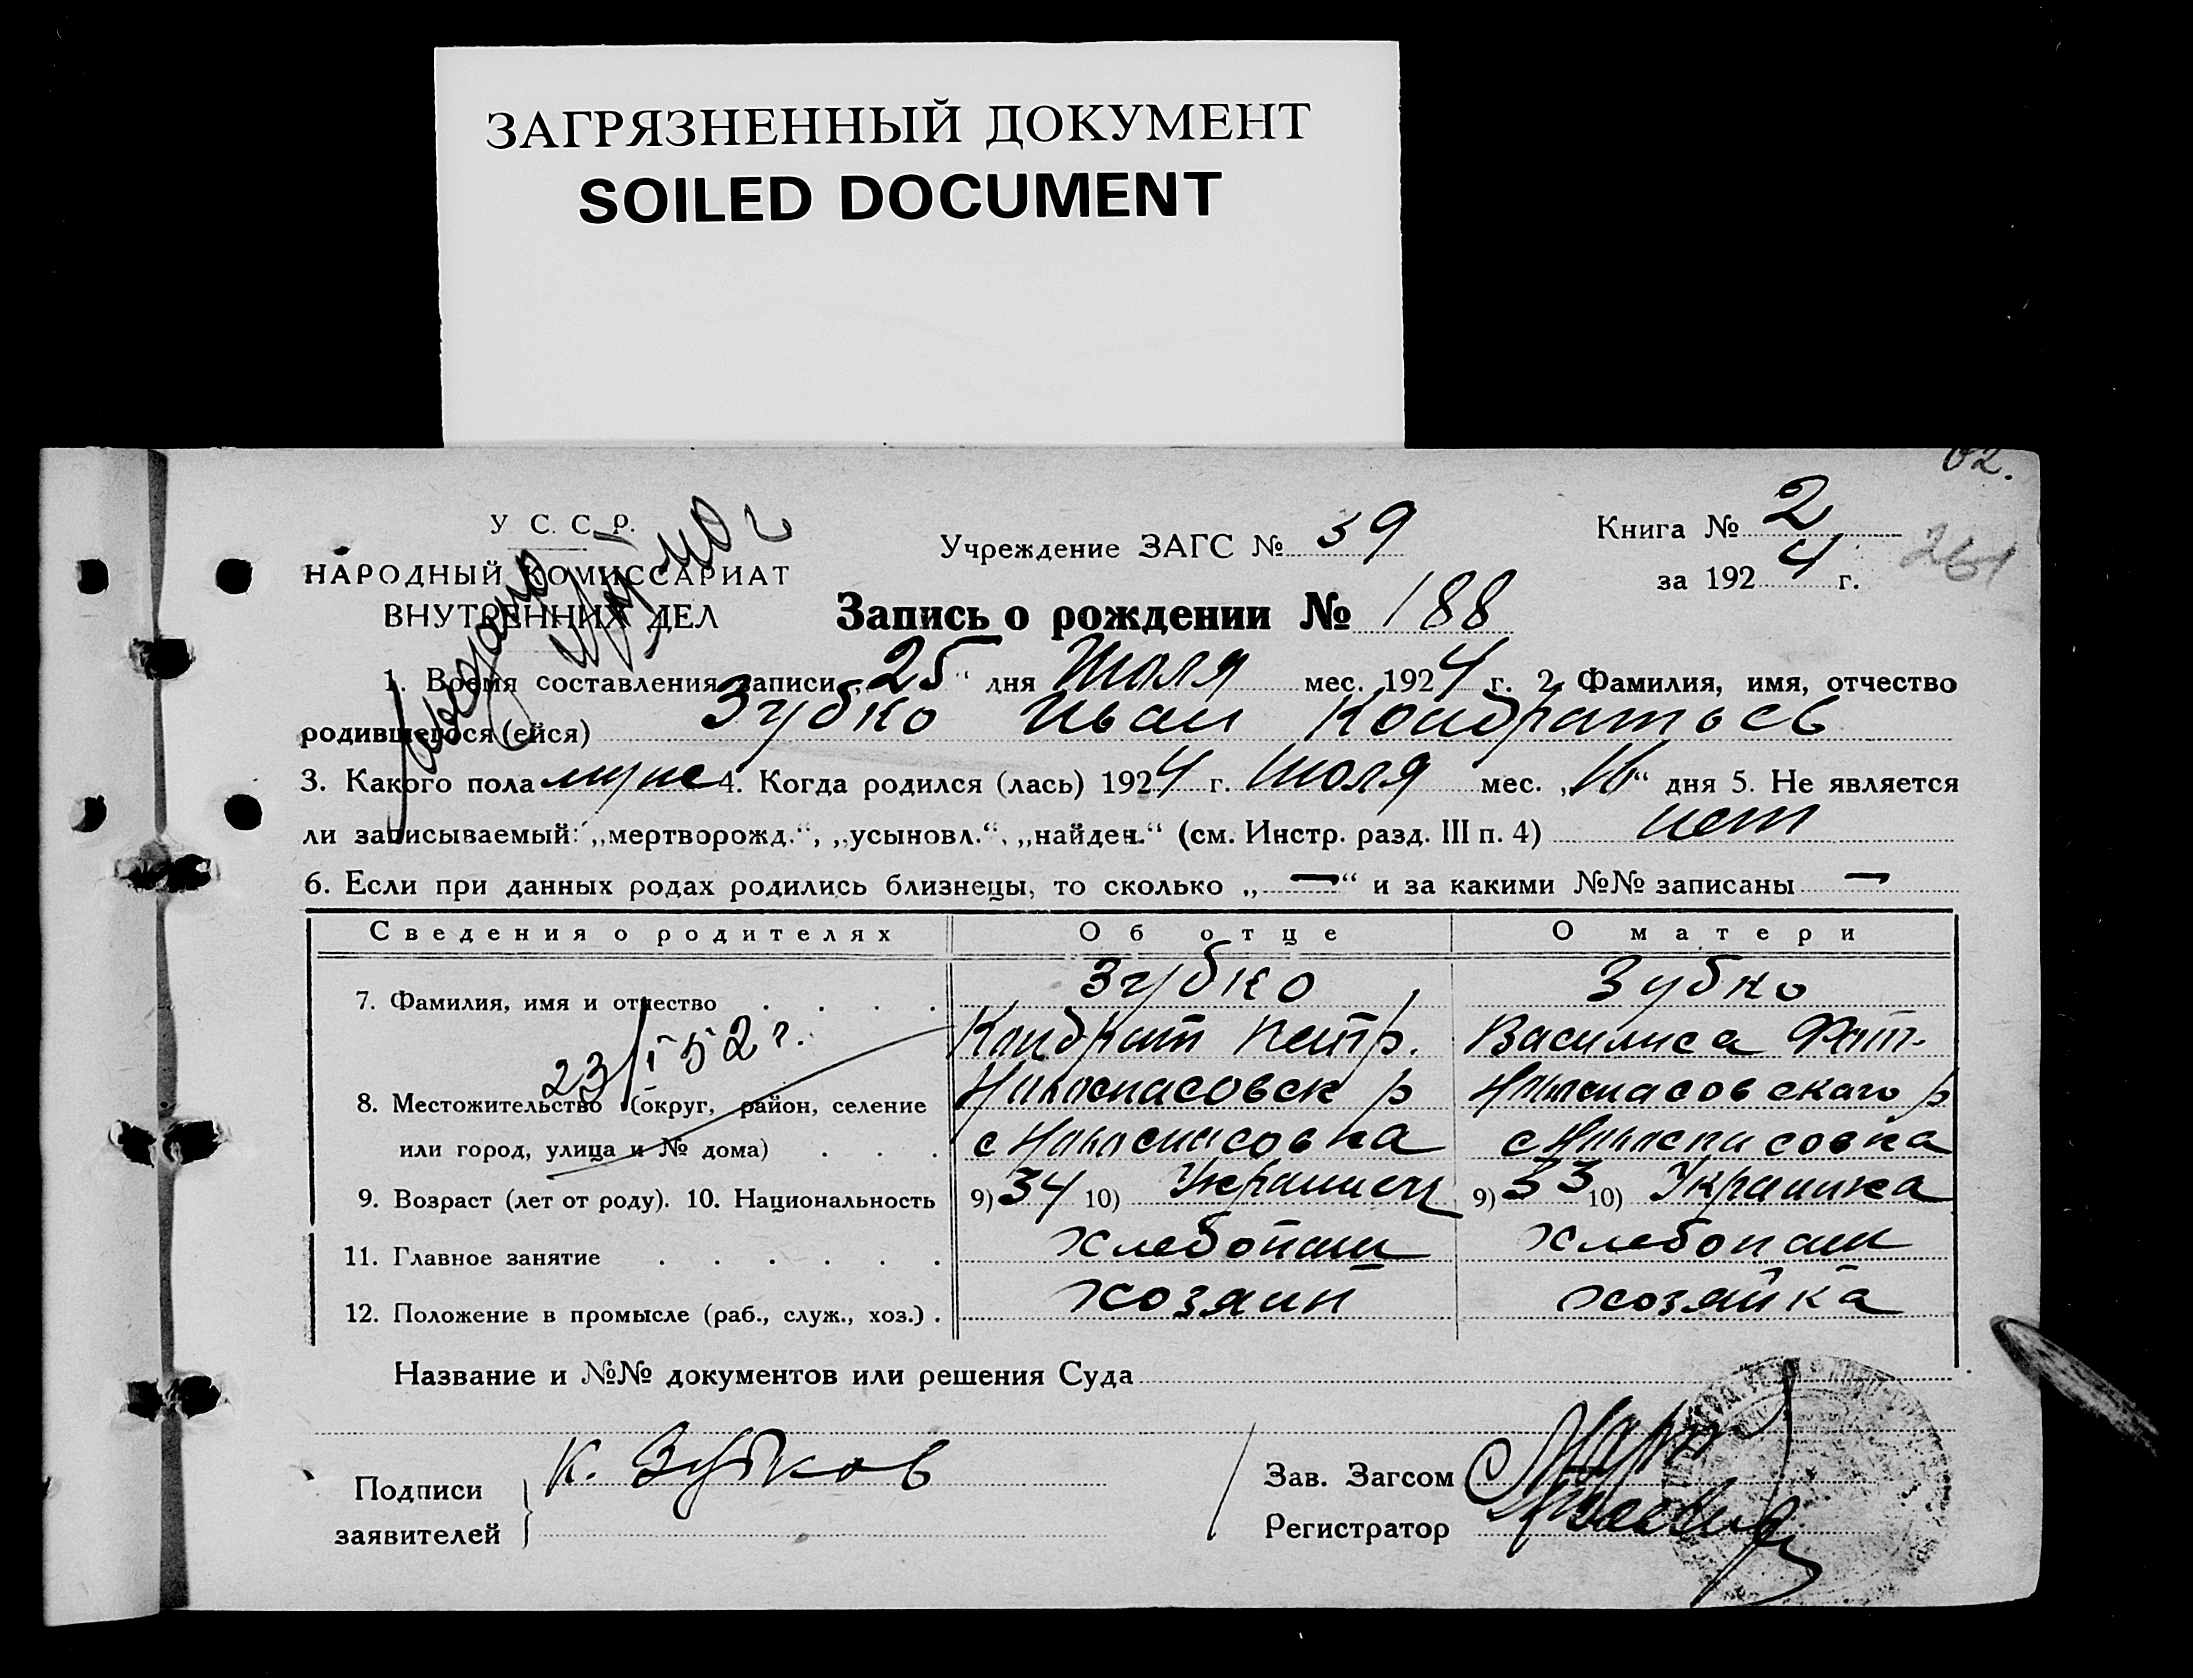 ЗАГРЯЗНЕННЫЙ ДОКУМЕНТ
SOILED DOCUMENT
У С. С. Р.
НАРОДНЫЙ КОМИССАРИАТ
ВНУТРЕННИХ ДЕЛ
Учреждение ЗАГС № 39
Книга № 2
за 1924 г.
261
Запись о рождении № 188
1. Время составления записи „25“ дня Июля мес. 1924 г. 2. Фамилия, имя, отчество
родившегося (ейся) Зубко Иван Кондратьев
3. Какого пола муже 4. Когда родился (лась) 1924 г. Июля мес. „16“ дня 5. Не является
ли записываемый: „мертворожд.“, „усыновл.“, „найден.“ (см. Инстр. разд. III п. 4) нет
6. Если при данных родах родились близнецы, то сколько „—“ и за какими №№ записаны —
Сведения о родителях Об отце О матери
7. Фамилия, имя и отчество . . . . Зубко Зубко
Кондрат Петр. Василиса
23/I 52 г.
8. Местожительство (округ, район, селение Новоспасовск р Новоспасовскаго р
или город, улица и № дома) . . . с Новоспасовка с Новоспасовка
9. Возраст (лет от роду). 10. Национальность 9) 34 10) Украинец 9) 33 10) Украинка
11. Главное занятие . . . . . . Хлебопаш Хлебопаш
12. Положение в промысле (раб., служ., хоз.) . Хозяин Хозяйка
Название и №№ документов или решения Суда
Подписи
заявителей
К. Зубков
Зав. Загсом
Регистратор